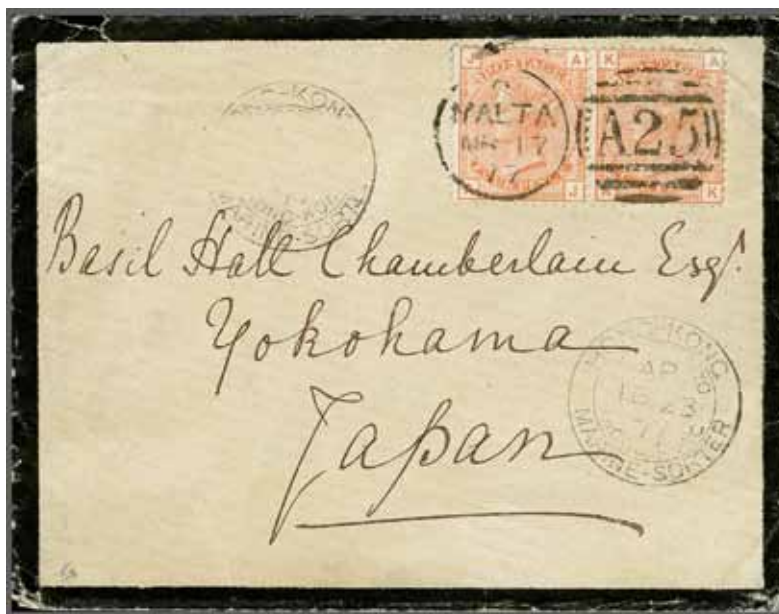 J A K A
MALTA
MR 17
77
A25
J K
HONG-KONG
MARINE-SORTER
Basil Hall Chamberlain Esqr.
Yokohama
Japan
HONG-KONG
AP
MARINE-SORTER